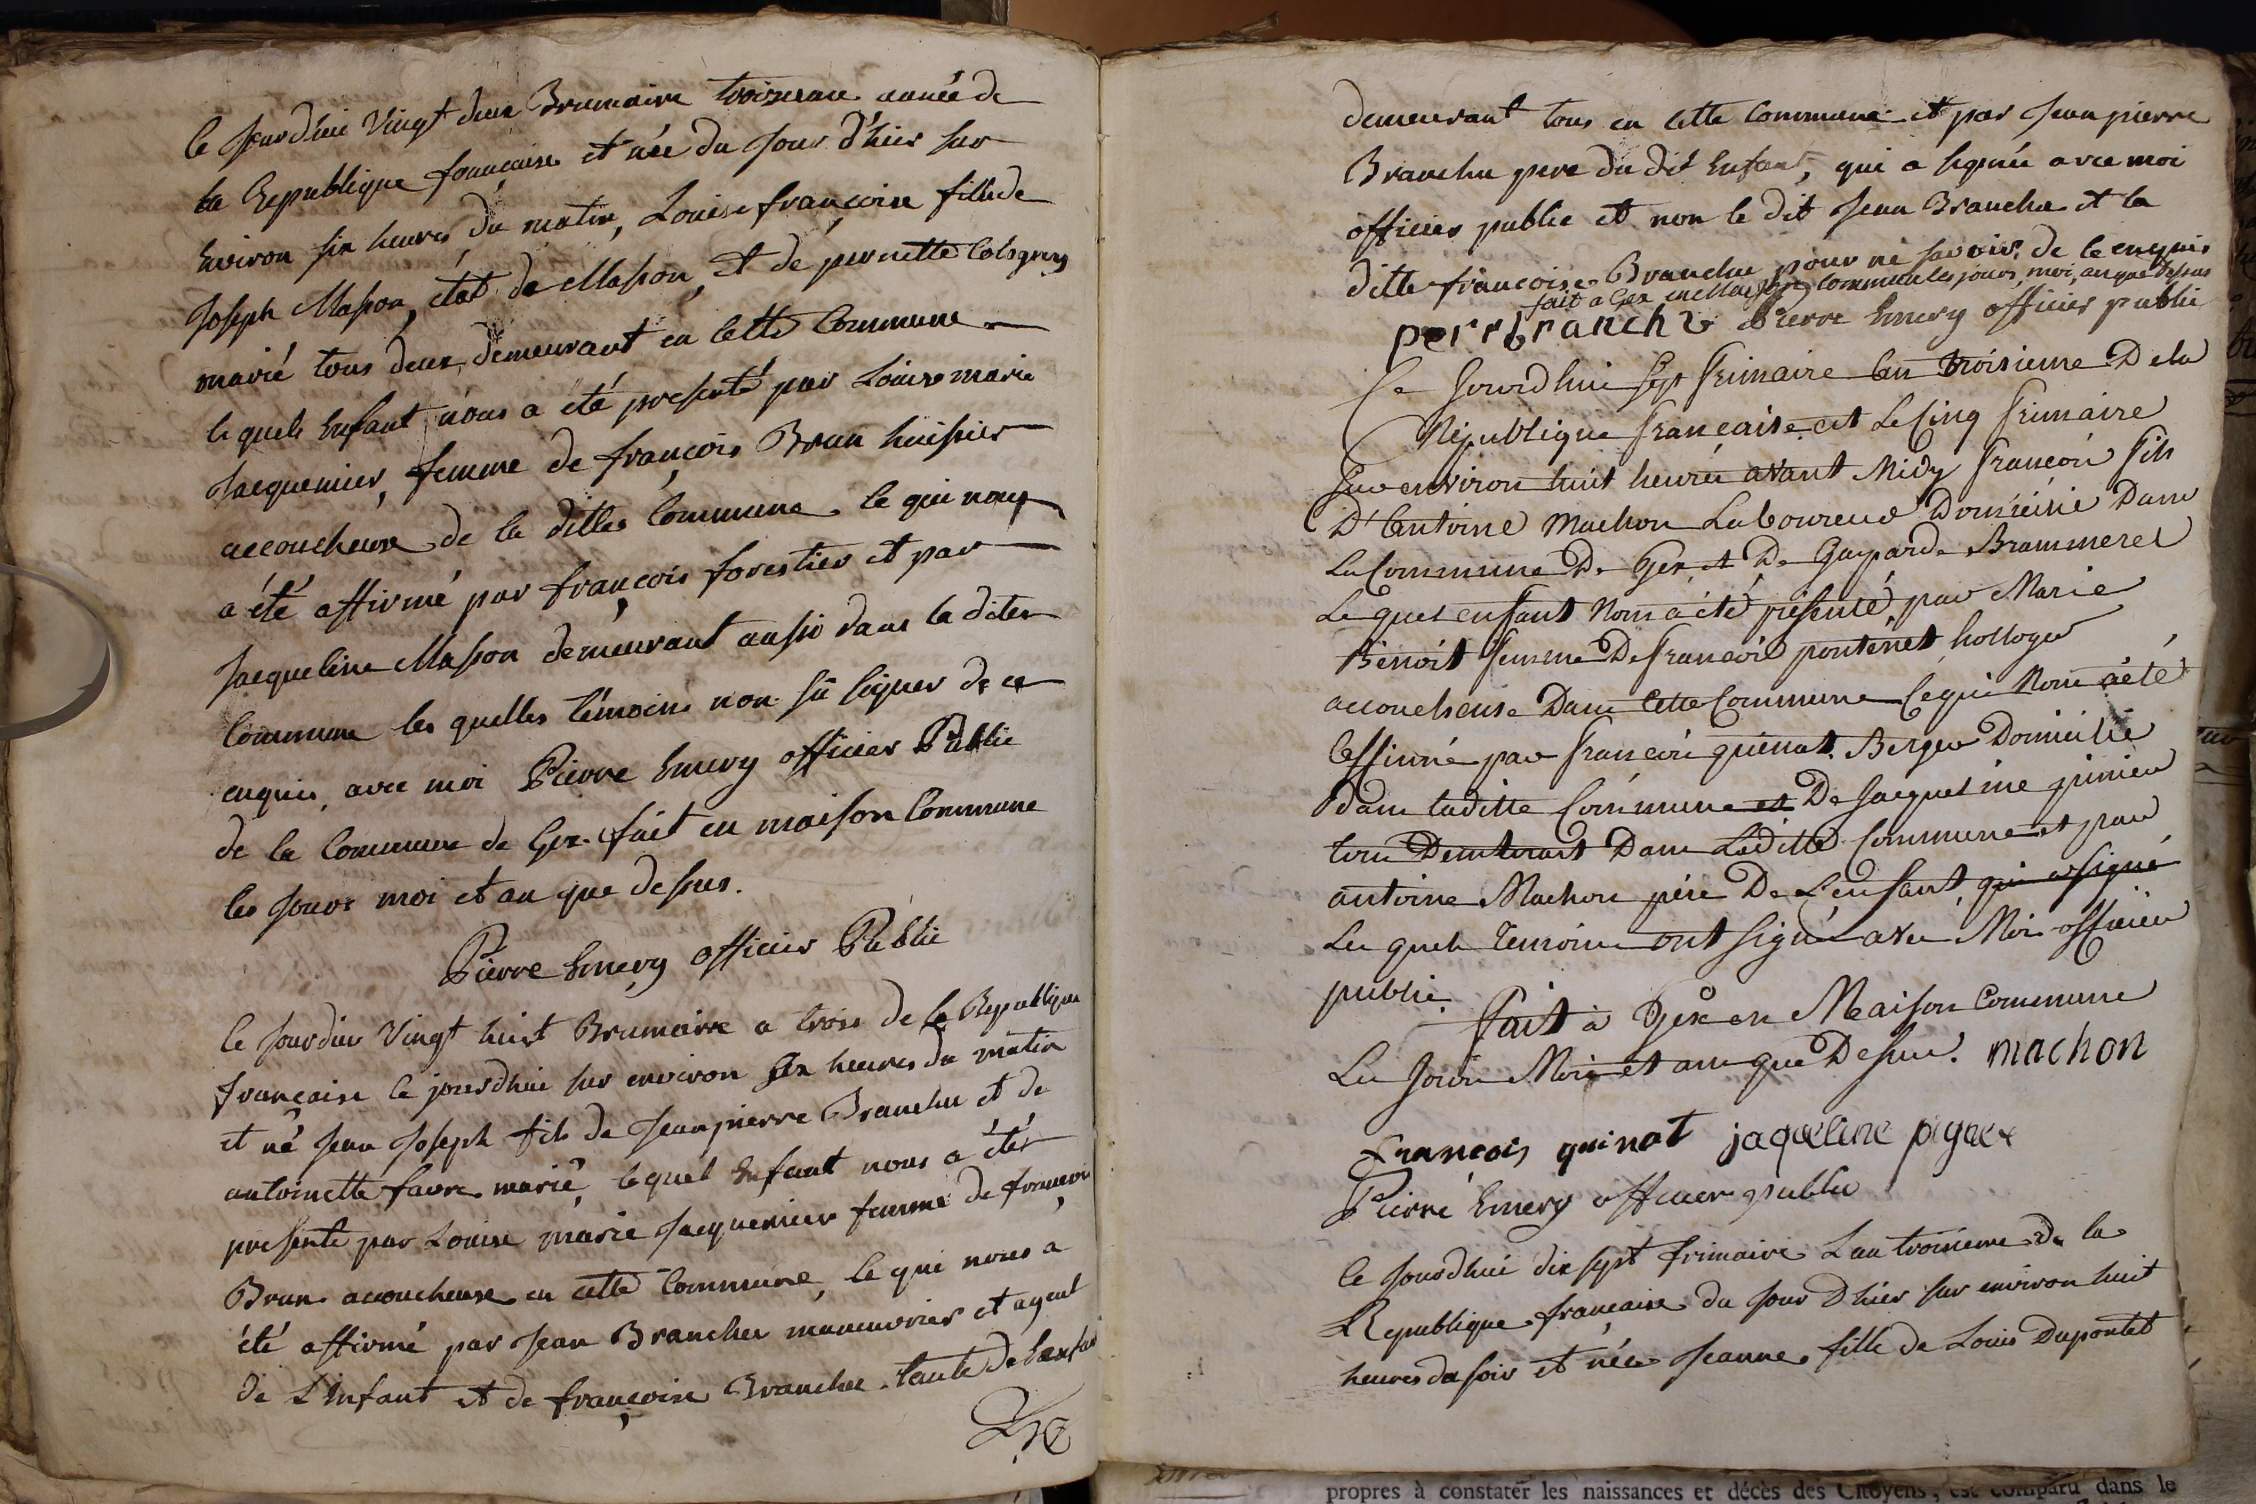 Ce Jourdhui Vingt deux Brumaire troisieme année de
la Republique française et née du Jour d'hier sur
Environ six heures du matin, Louise françoise fille de
Joseph Masson, état de Masson, et de pernette
marié tous deux demeurant en Cette Commune
le quels Enfant nous a été presenté par Louise marie
Jacquemier, femme de françois Brun huissier
accoucheuse de la ditte Commune le qui nous
a été affirmé par françois forestier et par
Jacqueline Masson demeurant aussi dans la dite
Commune les quelles témoins non sü signer de ce
enquis, avec moi Pierre Emery officier Public
de la Commune de Gex. fait en maison Commune
les Jours moi et an que dessus.
Pierre Emery officier Public
Ce Jourdui Vingt huit Brumaire a trois de la Republique
française le jourdhui sur environ six heures du matin
et né Jean Joseph fils de Jean pierre Branchu et de
antoinette favre marié, lequel Enfant nous a été
presenté par Louise marie Jacquemier femme de francois
Brun accoucheuse en cette Commune, le qui nous a
été affirmé par Jean Branchu manouvrier et
de L'Enfant et de françoise Branchu tante de Lenfant
demeurant tous en Cette Commune et par Jean pierre
Branchu pere du dit Enfant, qui a signée avec moi
officier public et non le dit Jean Branchu et la
ditte françoise Branchu pour ne savoir de le enquis
fait a Gex en Maison Commune les jours, moi, an que dessus
Pierre Emery officier public
Ce Jourdhui Sept frimaire Lan troisieme De la
République française est Le Cinq frimaire
Sur environ huit heures avant Midy françois fils
D'Antoine Machon Laboureur Domicilié Dans
La Commune De Gex et De Gasparde
Le quel enfant Nous a été présenté par Marie
Bénoit femme De François horloger
accoucheuse Dans Cette Commune Ce qui Nous a été
affirmé par françois quinat Berger Domicilié
Dans laditte Commune et De Jacqueline
tous Demeurant Dans Ladite Commune et par
antoine Machon père De L'enfant, qui a signé
Les quels temoins ont Signé avec Moi officier
public.
Fait à Gex en Maison Commune
Les Jours Mois et an que Dessus. machon
francois quinat jaqueline
Pierre Emery officier public
Ce Jourdhui dix sept frimaire Lan troisieme de la
Republique française du Jour D'hier sur environ huit
heures du soir et née Jeanne fille de Louis Dupontet
propres à constater les naissances et décès des Citoyens, est comparu dans le